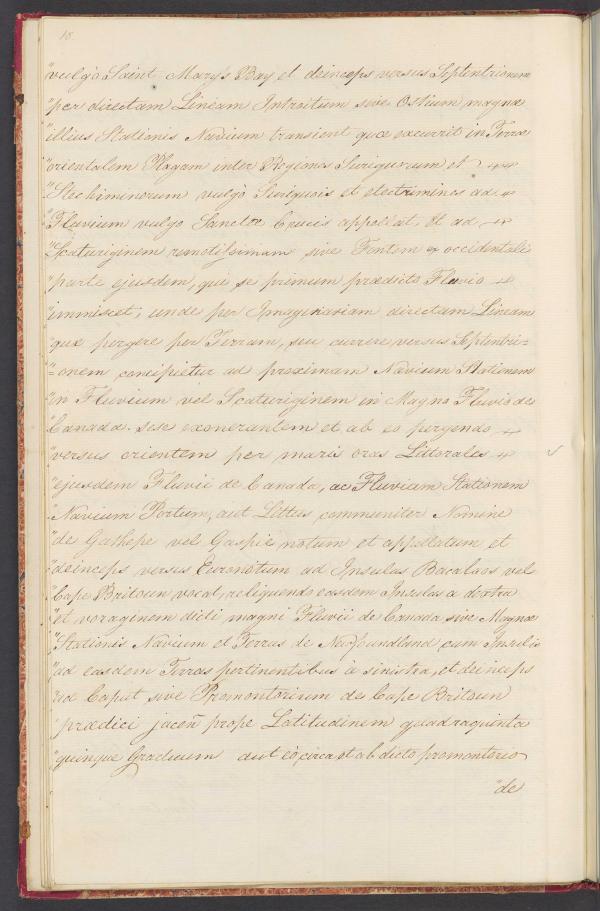 18
"vulgo Saint Mary's Bay et deinceps versus Septentrionem
"per directam Lineam Introitum sive Ostium magnæ
"illius Stationis Navium transient quæ excurrit in Terræ
"orientalem Plagam inter Regiones Suriquorum et
"Stechiminorum vulgò Suriquois et etectrimines ad
"Fluvium vulgo Sanctæ Crucis appellat, Et ad
"Scaturiginem remotissimam sive Fontem ex occidentali
"parte ejusdem, qui se primum prædicto Fluvio
"immiscet; unde per Imaginariam directam Lineam
"quæ pergere per Terram, seu currere versus Septentri=
"=onem concipietur ad proximam Navium Stationem
"in Fluvium vel Scaturiginem in Magno Fluvio de
"Canada sese exonerantem et ab eo pergendo
"versus orientem per maris oras Littorales
"ejusdem Fluvii de Canada, ac Fluviam Stationem
"Navium Portum, aut Littus communiter Nomine
"de Gathepe vel Gaspie notum et appellatum et
"deinceps versus Euronotum ad Insulas Bacalaos vel
"Cape Britoun vocat, relinquendo easdem Insulas a dextra
"et voraginem dicti magni Fluvii de Canada sive Magnæ
"Stationis Navium et Terras de Newfoundland cum Insulis
"ad easdem Terras pertinentibus à sinistra, et deinceps
"ad Caput sive Promontorium de Cape Britoun
"prædici jaceñ prope Latitudinem quadraquinta
"quinque Graduum aut eò circa et ab dicto promontorio
"de